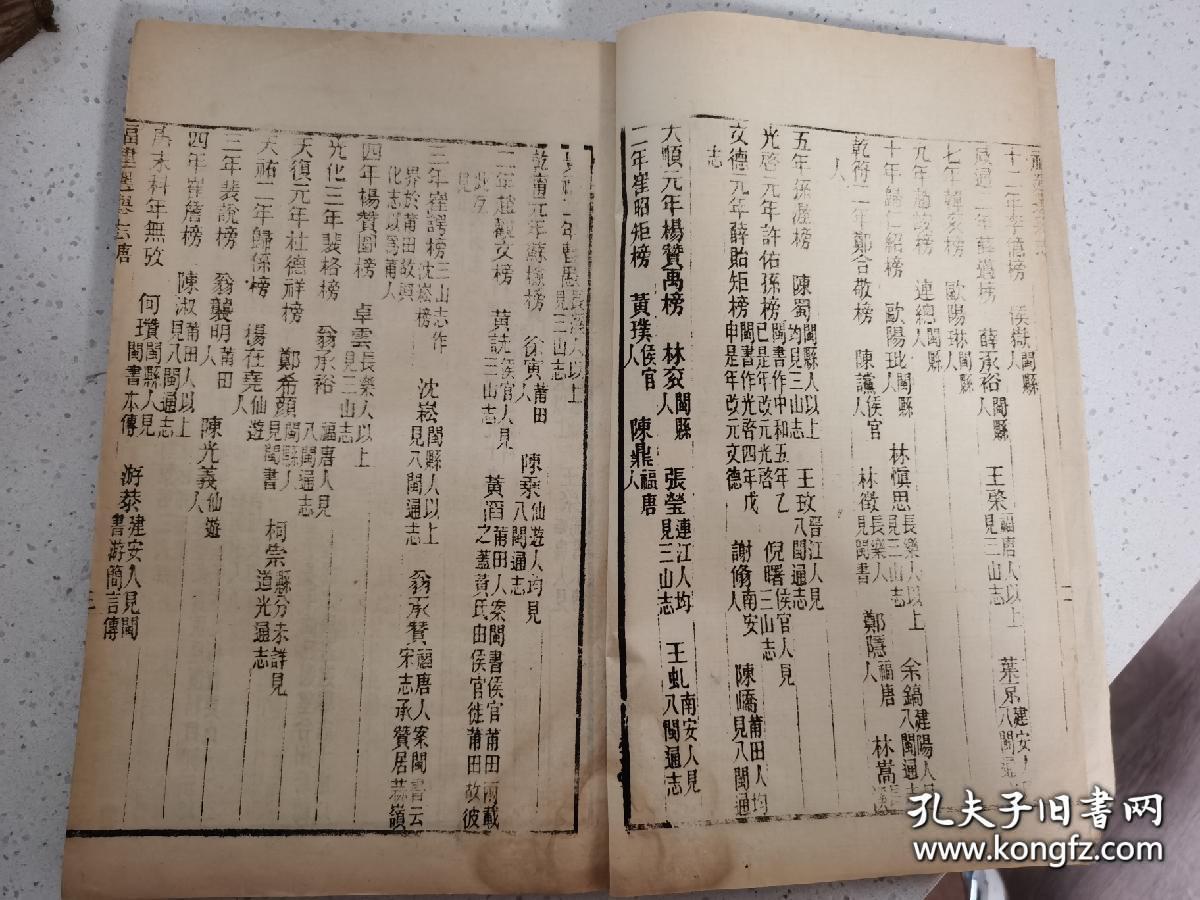 十二年李億榜 侯嶽閩縣人
咸通二年薛邁榜 薛承裕閩縣人 王棨福唐人以上見三山志 葉京建安人
七年韓袞榜 歐陽琳閩縣人
九年趙峻榜 連總閩縣人
十年歸仁紹榜 歐陽玭閩縣人 林慎思長樂人以上見三山志 余鎬建陽人見八閩通志
乾符二年鄭合敬榜 陳讜侯官人 林徵長樂人見閩書 鄭隱福唐人 林嵩
五年孫偓榜 陳蜀閩縣人以上均見三山志 王玫晉江人見八閩通志
光啓元年許佑孫榜閩書作中和五年乙巳是年改元光啓 倪曙侯官人見三山志
文德元年薛貽矩榜閩書作光啓四年戊申是年改元文德 謝脩南安人 陳嶠莆田人均見八閩通志
大順元年楊贊禹榜 林袞閩縣人 張瑩連江人均見三山志 王虬南安人見八閩通志
二年崔昭矩榜 黃璞侯官人 陳鼎福唐人
乾甯元年蘇檢榜 徐寅莆田人 陳乘仙遊人均見八閩通志
二年趙觀文榜 黃詵侯官人見三山志 黃滔莆田人案閩書侯官莆田兩載之蓋黃氏由侯官徙莆田故彼此互見
三年崔諤榜三山志作沈崧榜 沈崧閩縣人以上見八閩通志 翁承贊福唐人案閩書云宋志承贊居蒜嶺界於莆田故興化志以爲莆人
四年楊贊圖榜 卓雲長樂人以上見三山志
光化三年裴格榜 翁承裕福唐人見八閩通志
天復元年杜德祥榜 鄭希顏閩縣人見閩書 柯崇縣分未詳見道光通志
天祐二年歸係榜 楊在堯仙遊人
三年裴說榜 翁襲明莆田人 陳光義仙遊人
四年崔詹榜 陳淑莆田人以上見八閩通志
唐末科年無攷 何瓚閩縣人見閩書本傳 游恭建安人見閩書游簡言傳
福建選舉志唐 三
孔夫子旧書网
www.kongfz.com